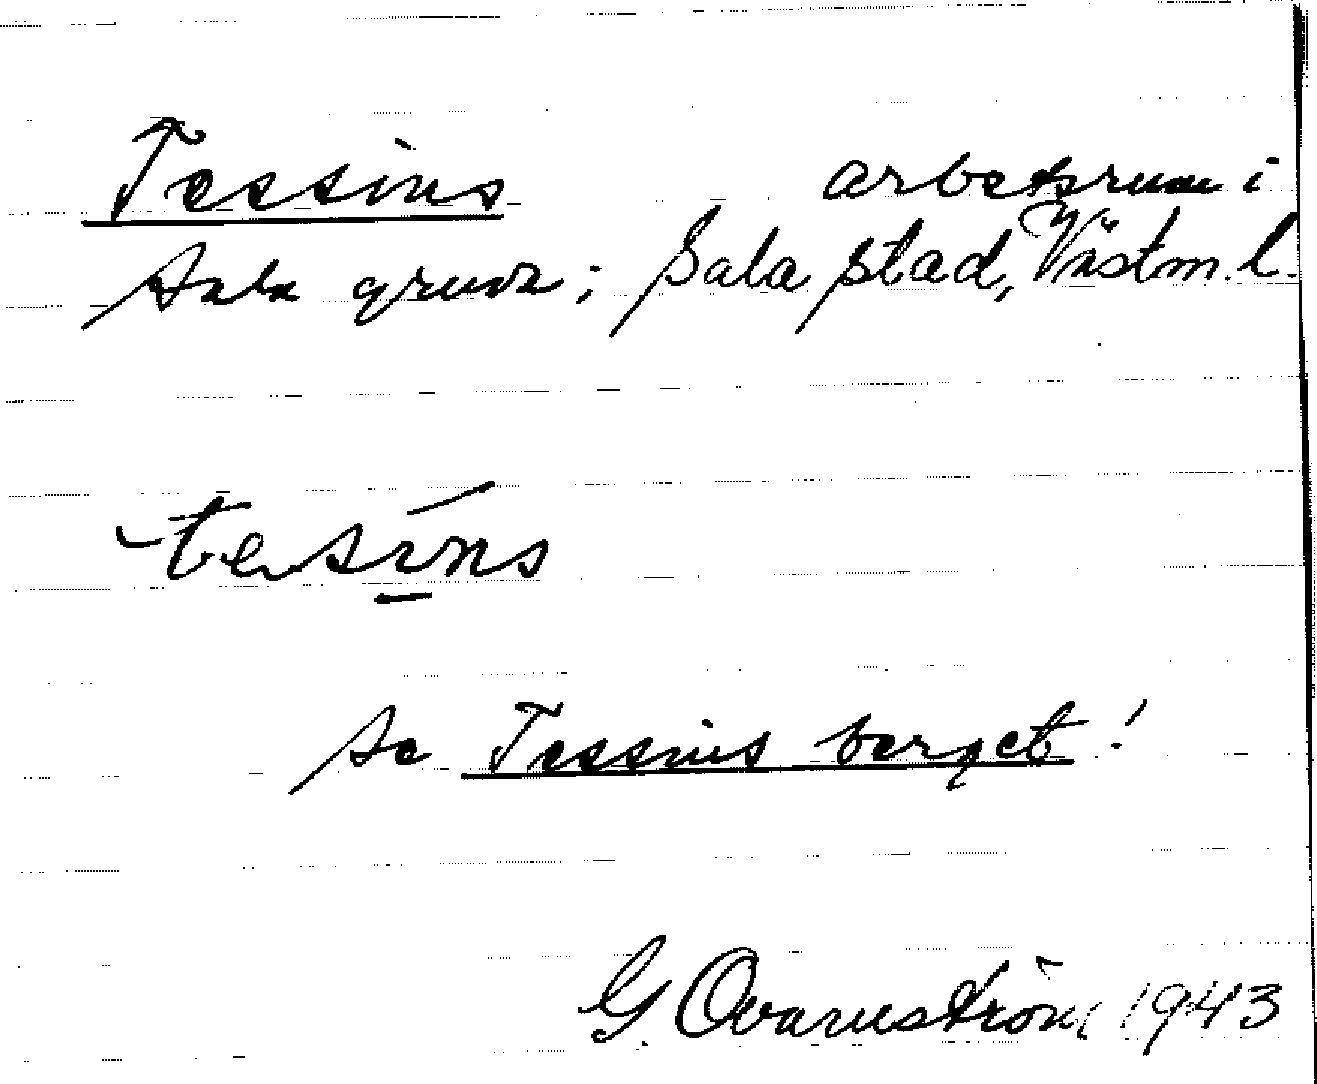 Tessins arbetsrum i
Sala gruva; Sala stad, Västm. l.
tesins
se Tessins berget!
G. Qvarnström 1943